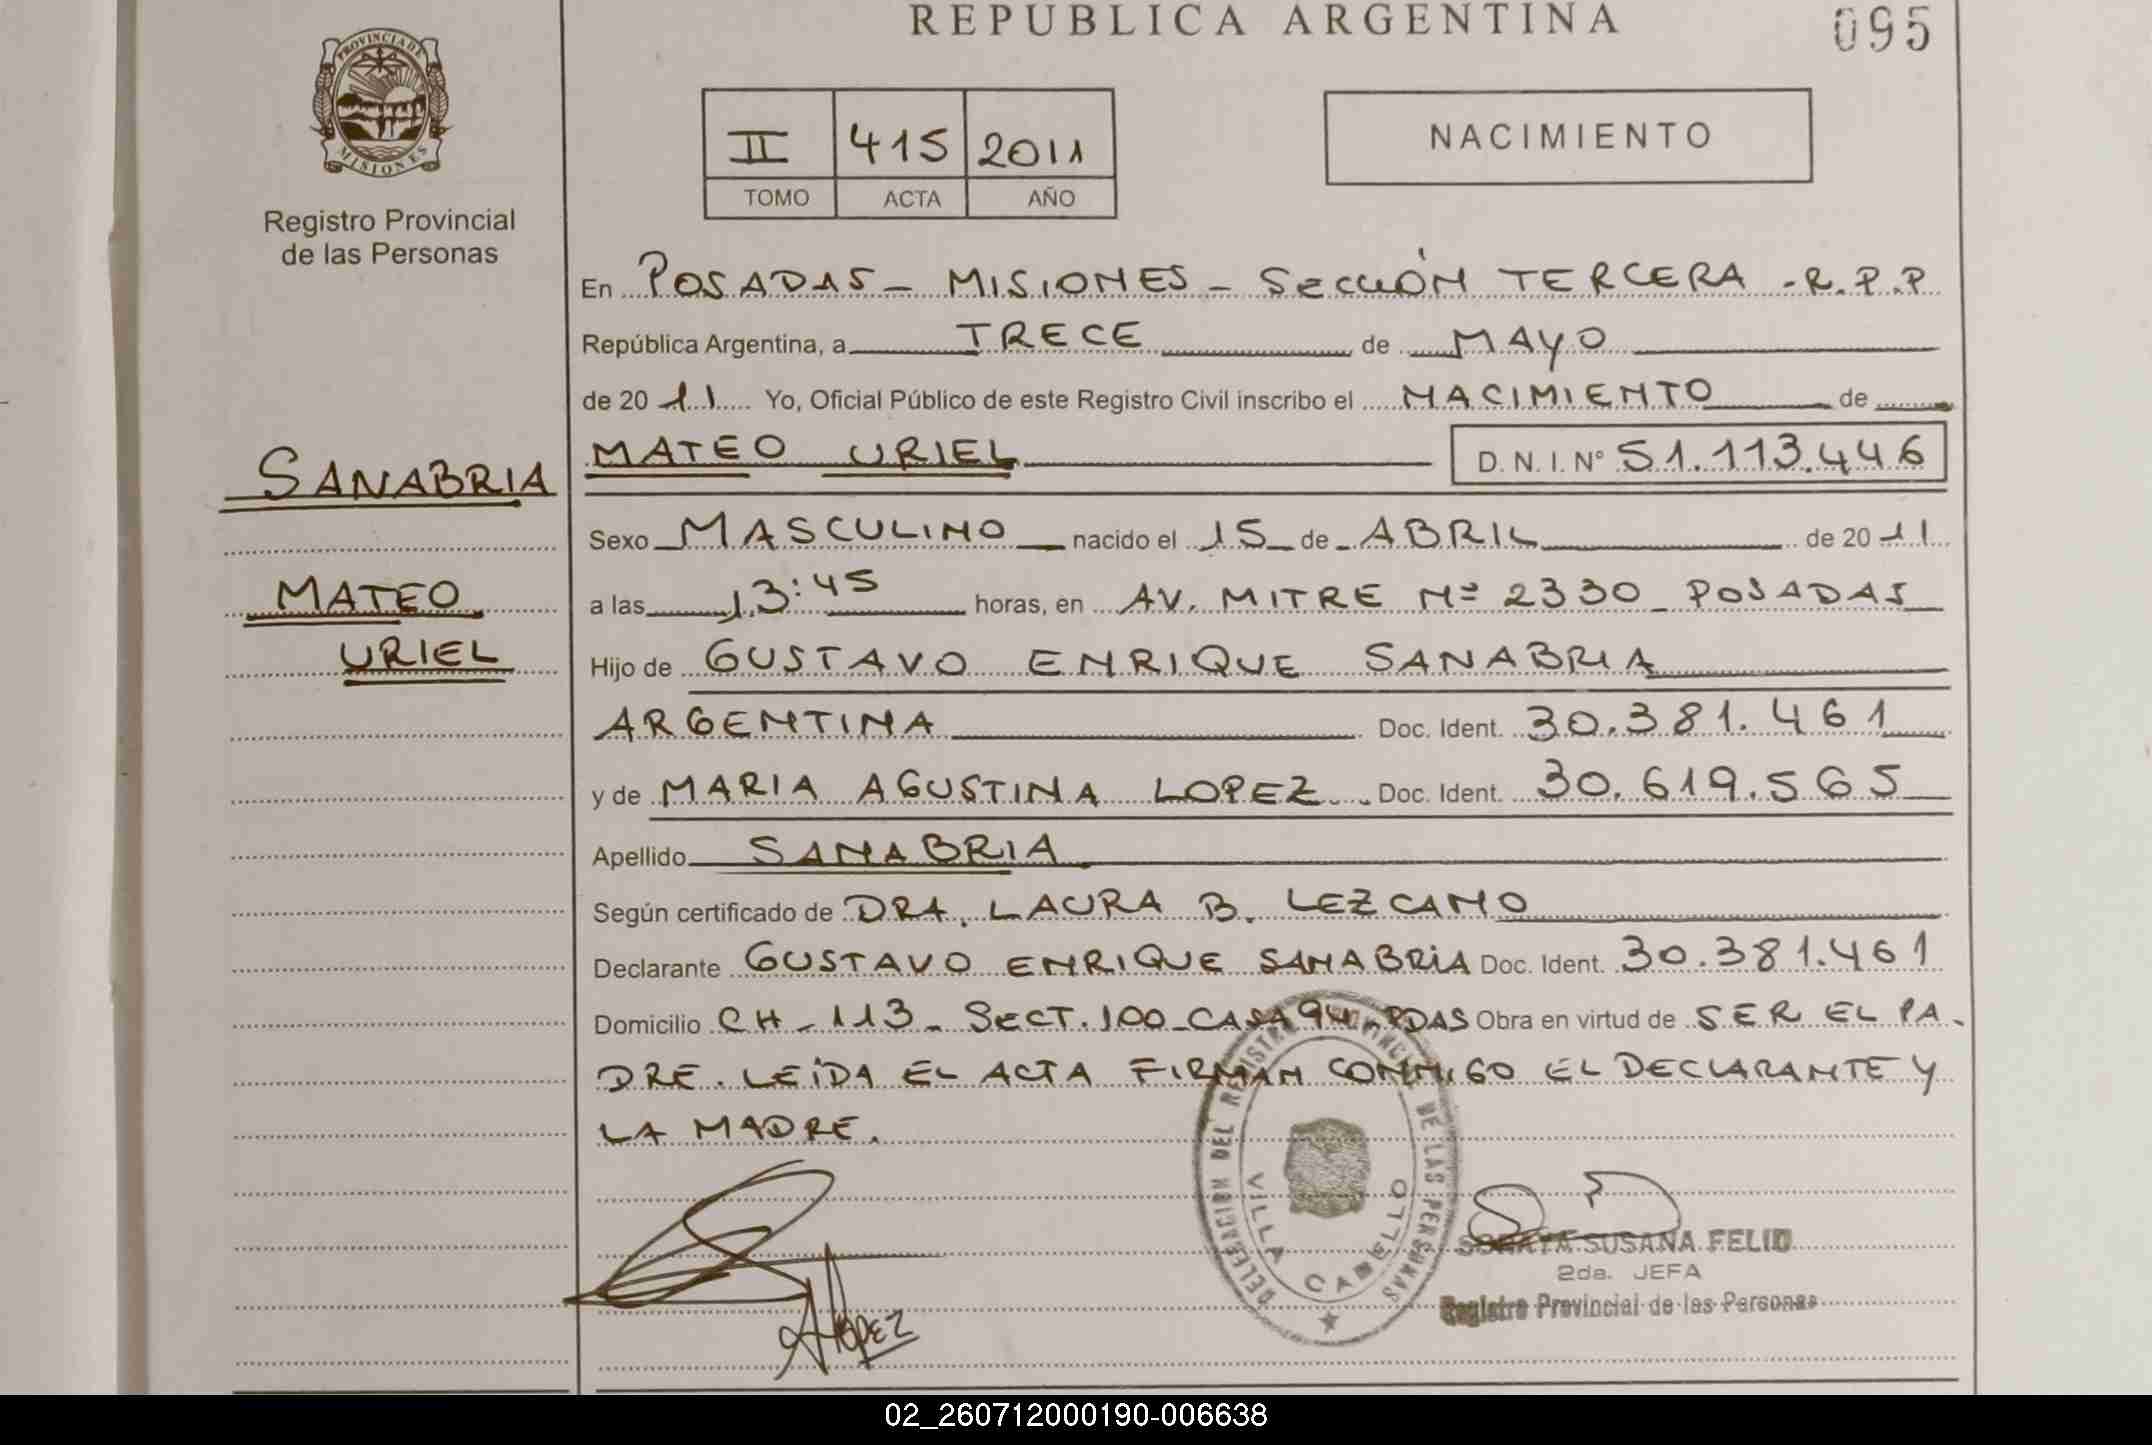 REPUBLICA ARGENTINA
095
PROVINCIA DE
MISIONES
Registro Provincial
de las Personas
II 415 2011
TOMO ACTA AÑO
NACIMIENTO
En POSADAS - MISIONES - SECCIÓN TERCERA - R.P.P
República Argentina, a TRECE de MAYO
de 20 11 Yo, Oficial Público de este Registro Civil inscribo el NACIMIENTO de
MATEO URIEL D.N.I. Nº 51.113.446
SANABRIA
MATEO
URIEL
Sexo MASCULINO nacido el 15 de ABRIL de 20 11
a las 13:45 horas, en AV. MITRE Nº 2330 - POSADAS
Hijo de GUSTAVO ENRIQUE SANABRIA
ARGENTINA Doc. Ident. 30.381.461
y de MARIA AGUSTINA LOPEZ Doc. Ident. 30.619.565
Apellido SANABRIA
Según certificado de DRA. LAURA B. LEZCANO
Declarante GUSTAVO ENRIQUE SANABRIA Doc. Ident. 30.381.461
Domicilio CH - 113 - SECT. 100 - CASA 94 - PDAS Obra en virtud de SER EL PA-
DRE. LEÍDA EL ACTA FIRMAN CONMIGO EL DECLARANTE Y
LA MADRE.
DELEGACION DEL REGISTRO PROVINCIAL DE LAS PERSONAS
VILLA CABELLO
LOPEZ
SORAYA SUSANA FELIU
2da. JEFA
Registro Provincial de las Personas
02_260712000190-006638